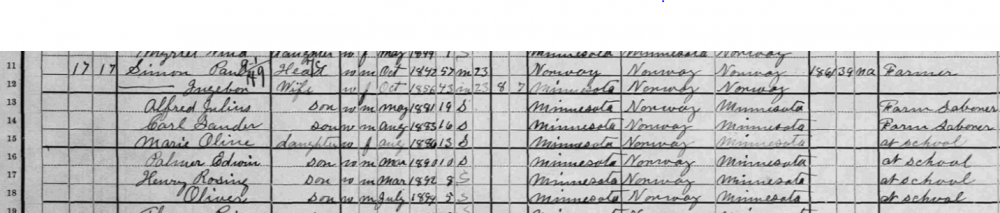 daughter w f May 1899 1 S Minnesota Minnesota Norway
11 17 17 Simon Paul Head w m Oct 1842 57 m 23 Norway Norway Norway 1861 39 na Farmer
12 —— Ingebor Wife w f Oct 1856 43 m 23 8 7 Minnesota Norway Norway
13 Alfred Julius Son w m May 1881 19 S Minnesota Norway Minnesota Farm Laborer
14 Carl Son w m Aug 1883 16 S Minnesota Norway Minnesota Farm Laborer
15 Marie Oline daughter w f Aug 1886 13 S Minnesota Norway Minnesota at school
16 Palmer Edwin Son w m Mar 1890 10 S Minnesota Norway Minnesota at school
17 Henry Rosine Son w m Mar 1892 8 S Minnesota Norway Minnesota at school
18 Oliver Son w m July 1894 5 S Minnesota Norway Minnesota at school